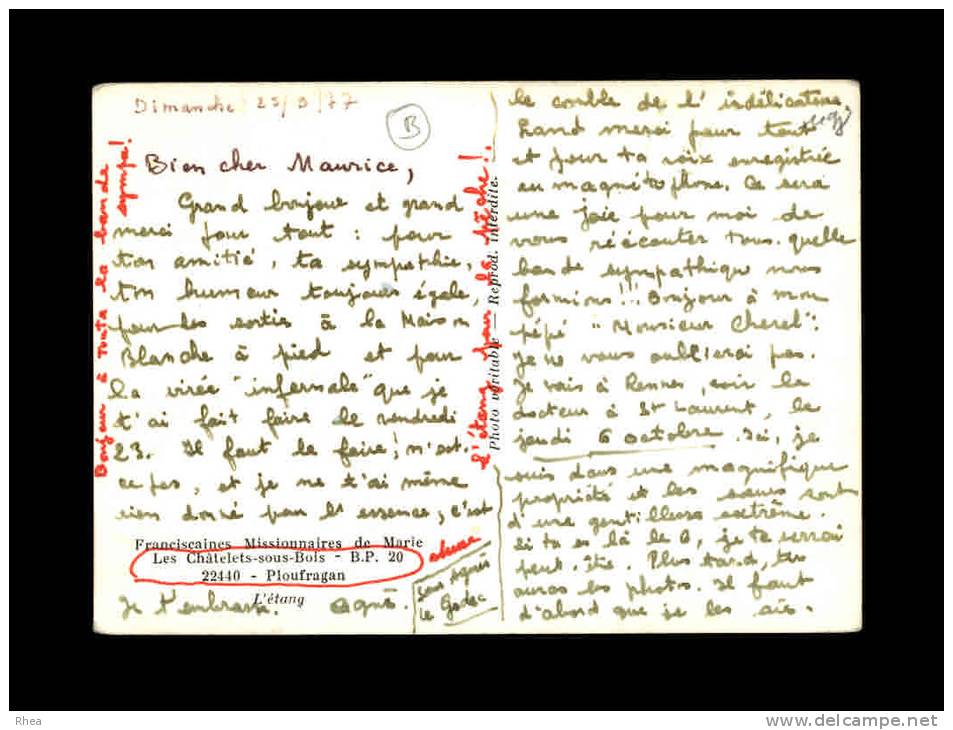 Dimanche 25/9/77
B
Bien cher Maurice,
Grand bonjour et grand
merci pour tout : pour
ton amitié, ta sympathie,
ton humour toujours égale,
pour les sorties à la Maison
Blanche à pied et pour
la virée "infernale" que je
t'ai fait faire le vendredi
23. Il faut le faire, n'est
ce pas, et je ne t'ai même
rien donné pour l'essence, c'est
Franciscaines Missionnaires de Marie
Les Châtelets-sous-Bois - B.P. 20
22440 - Ploufragan
L'étang
Je t'embrasse. Agnès.
Bonjour à toute la bande
sympa!
l'étang pour la pêche!.
Photo véritable — Reprod. interdite.
Agnès
Le Godec
le comble de l'indélicatesse.
Grand merci pour tout
et pour ta voix enregistrée
au magnétophone. Ce sera
une joie pour moi de
vous réécouter tous. quelle
bande sympathique nous
formions!!! Bonjour à mon
pépé "Monsieur Cherel".
Je ne vous oublierai pas.
Je vais à Rennes, voir le
docteur à St Laurent, le
jeudi 6 octobre. Ici, je
suis dans une magnifique
propriété et les sœurs sont
d'une gentillesse extrême.
Si ta es là le 6, je te verrai
peut-être. Plus tard, tu
auras les photos. Il faut
d'abord que je les aie.
Rhea
www.delcampe.net